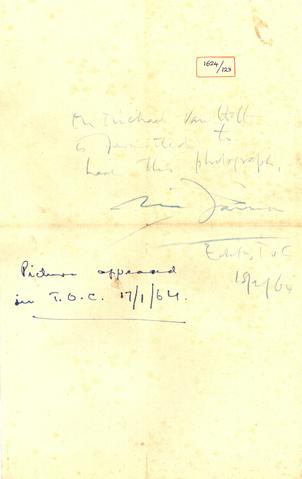 1624/123
Mr Michael Van Hoff
is permitted to
have this photograph.
Editor, T.O.C
Picture appeared
in T.O.C. 17/1/64.